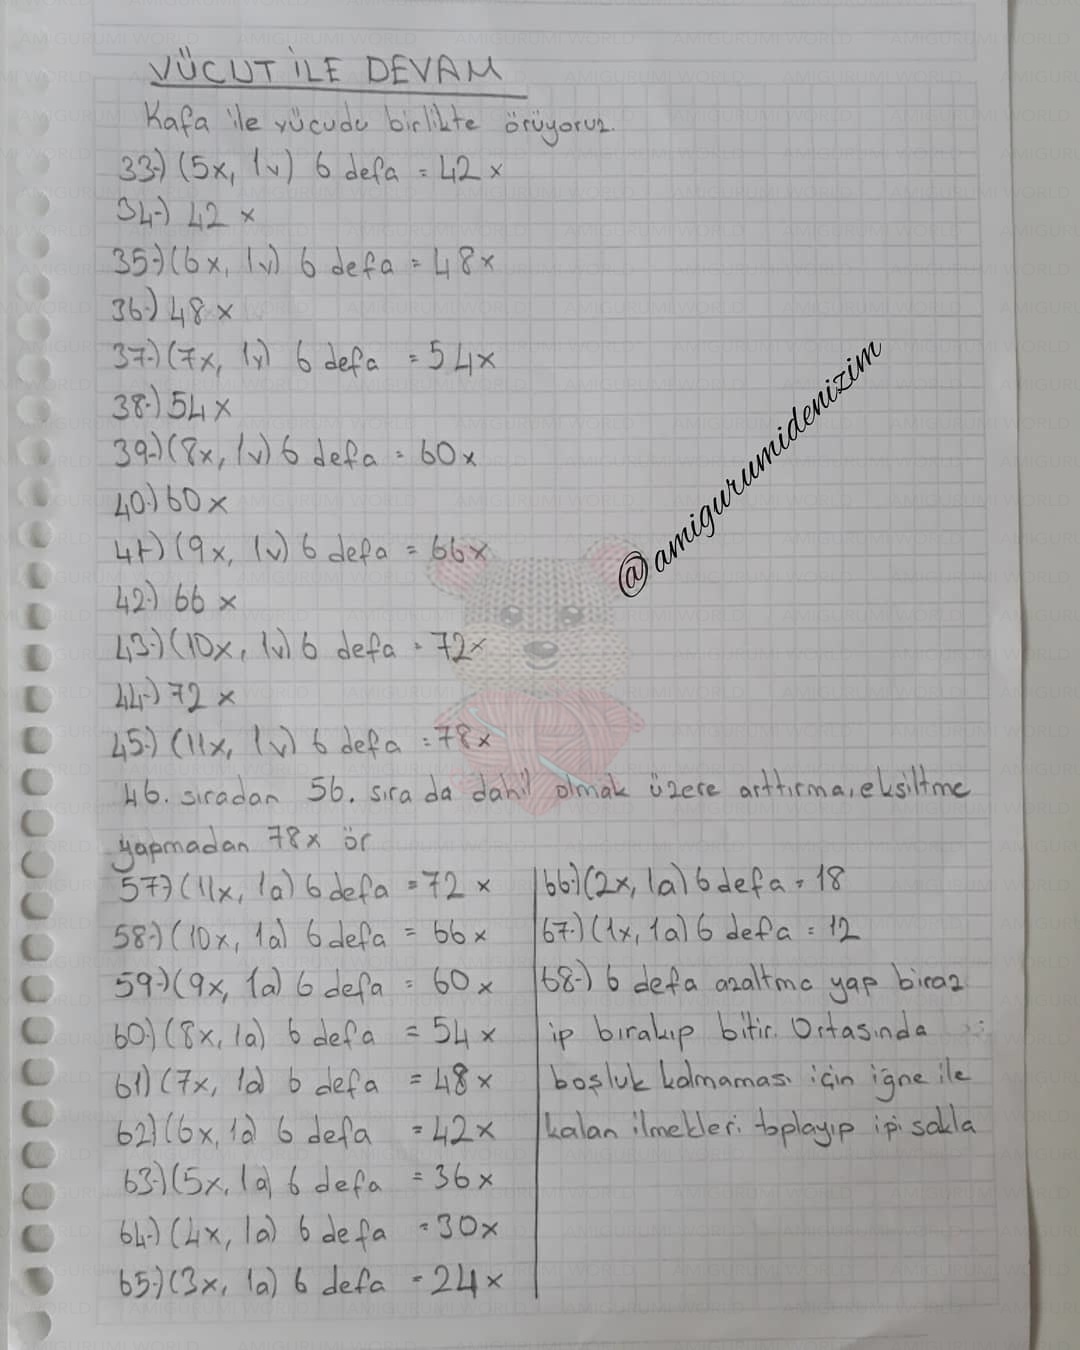 VÜCUT İLE DEVAM
Kafa ile vücudu birlikte örüyoruz.
33-) (5x, 1v) 6 defa = 42x
34-) 42 x
35-) (6x, 1v) 6 defa = 48x
36-) 48 x
37-) (7x, 1v) 6 defa = 54x
38-) 54 x
39-) (8x, 1v) 6 defa = 60x
40-) 60 x
41-) (9x, 1v) 6 defa = 66x
42-) 66 x
43-) (10x, 1v) 6 defa = 72x
44-) 72 x
45-) (11x, 1v) 6 defa = 78x
46. sıradan 56. sıra da dahil olmak üzere arttırma, eksiltme
yapmadan 78x ör
57-) (11x, 1a) 6 defa = 72 x
58-) (10x, 1a) 6 defa = 66x
59-) (9x, 1a) 6 defa = 60x
60-) (8x, 1a) 6 defa = 54x
61) (7x, 1a) 6 defa = 48x
62) (6x, 1a) 6 defa = 42x
63-) (5x, 1a) 6 defa = 36x
64-) (4x, 1a) 6 defa = 30x
65-) (3x, 1a) 6 defa = 24x
66-) (2x, 1a) 6 defa = 18
67-) (1x, 1a) 6 defa = 12
68-) 6 defa azaltma yap biraz
ip bırakıp bitir. Ortasında
boşluk kalmaması için iğne ile
kalan ilmekleri toplayıp ipi sakla
@amigurumidenizim
AMIGURUMI WORLD